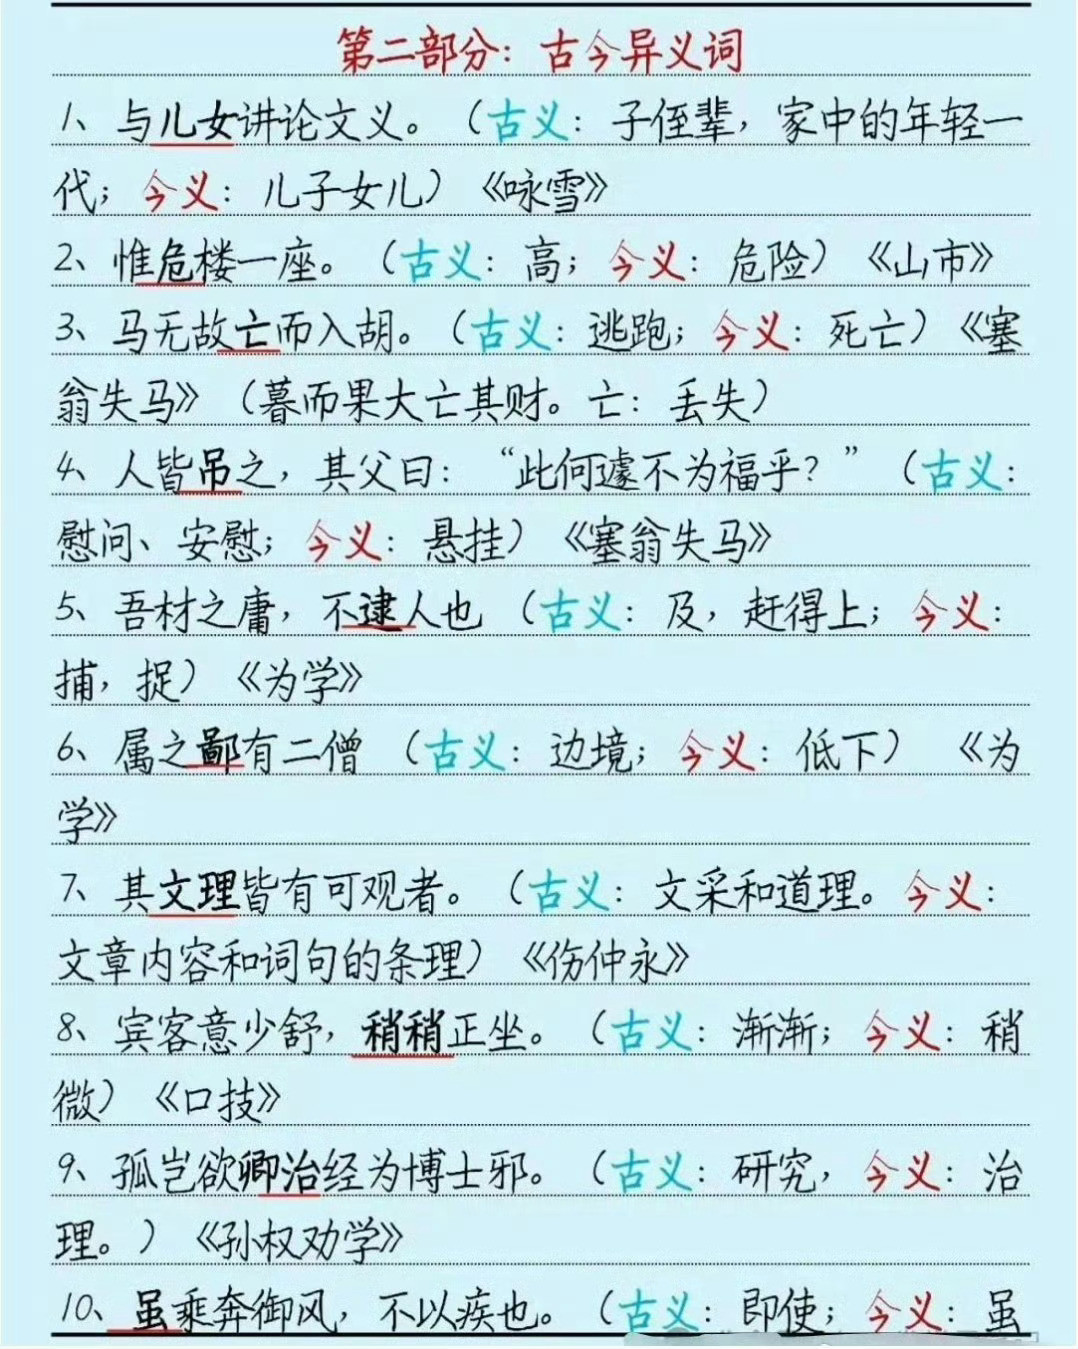 第二部分：古今异义词
1、与儿女讲论文义。（古义：子侄辈，家中的年轻一
代；今义：儿子女儿）《咏雪》
2、惟危楼一座。（古义：高；今义：危险）《山市》
3、马无故亡而入胡。（古义：逃跑；今义：死亡）《塞
翁失马》（暮而果大亡其财。亡：丢失）
4、人皆吊之，其父曰：“此何遽不为福乎？”（古义：
慰问、安慰；今义：悬挂）《塞翁失马》
5、吾材之庸，不逮人也（古义：及，赶得上；今义：
捕，捉）《为学》
6、属之鄙有二僧（古义：边境；今义：低下）《为
学》
7、其文理皆有可观者。（古义：文采和道理。今义：
文章内容和词句的条理）《伤仲永》
8、宾客意少舒，稍稍正坐。（古义：渐渐；今义：稍
微）《口技》
9、孤岂欲卿治经为博士邪。（古义：研究，今义：治
理。）《孙权劝学》
10、虽乘奔御风，不以疾也。（古义：即使；今义：虽